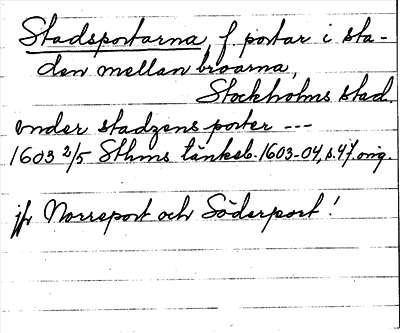 Stadsportarna, f. portar i sta-
den mellan broarna,
Stockholms stad.
under stadzens porter ---
1603 2/5 Sthms tänkeb. 1603-04, s. 47. orig.
jfr Norreport och Söderport!